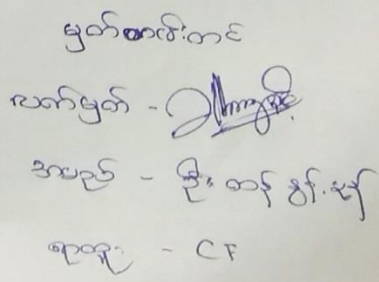 မှတ်တမ်းတင်
လက်မှတ် -
အမည် - ဦး တန် ဇွန်း
ရာထူး - CF